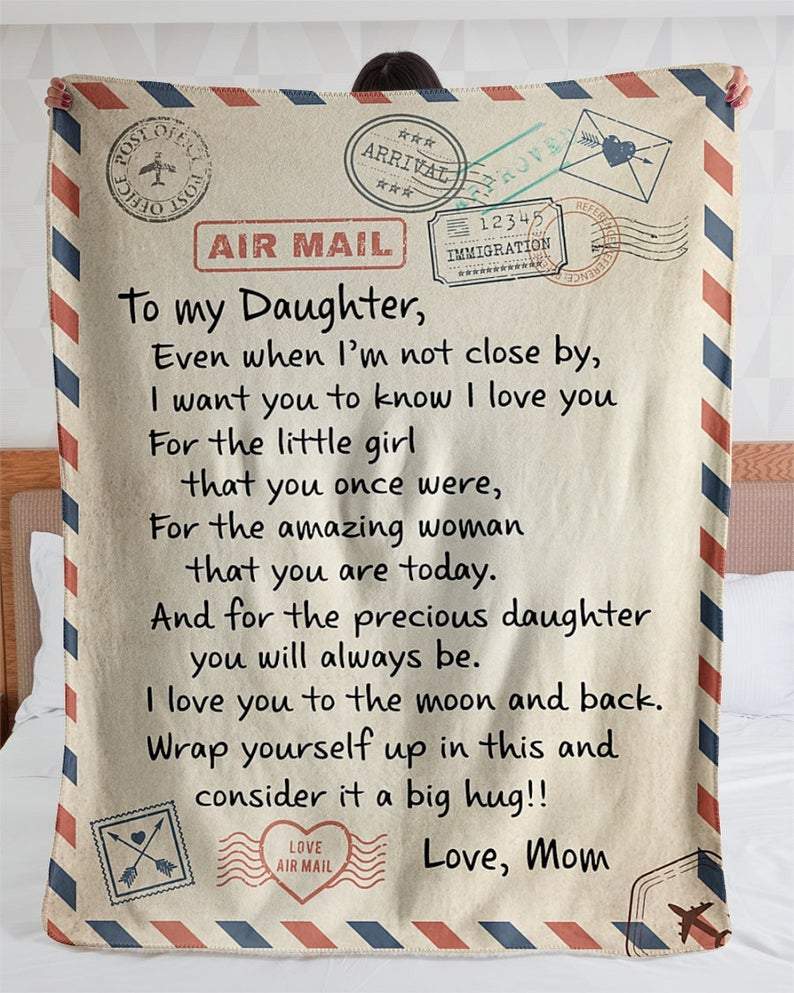 POST OFFICE
POST OFFICE
ARRIVAL
APPROVED
12345
IMMIGRATION
REFERENCE
REFERENCE
AIR MAIL
To my Daughter,
Even when I'm not close by,
I want you to know I love you
For the little girl
that you once were,
For the amazing woman
that you are today.
And for the precious daughter
you will always be.
I love you to the moon and back.
Wrap yourself up in this and
consider it a big hug!!
Love, Mom
LOVE
AIR MAIL